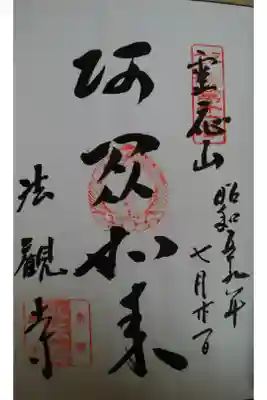 霊応山
昭和五九年
七月廿一日
阿閦如来
法觀寺